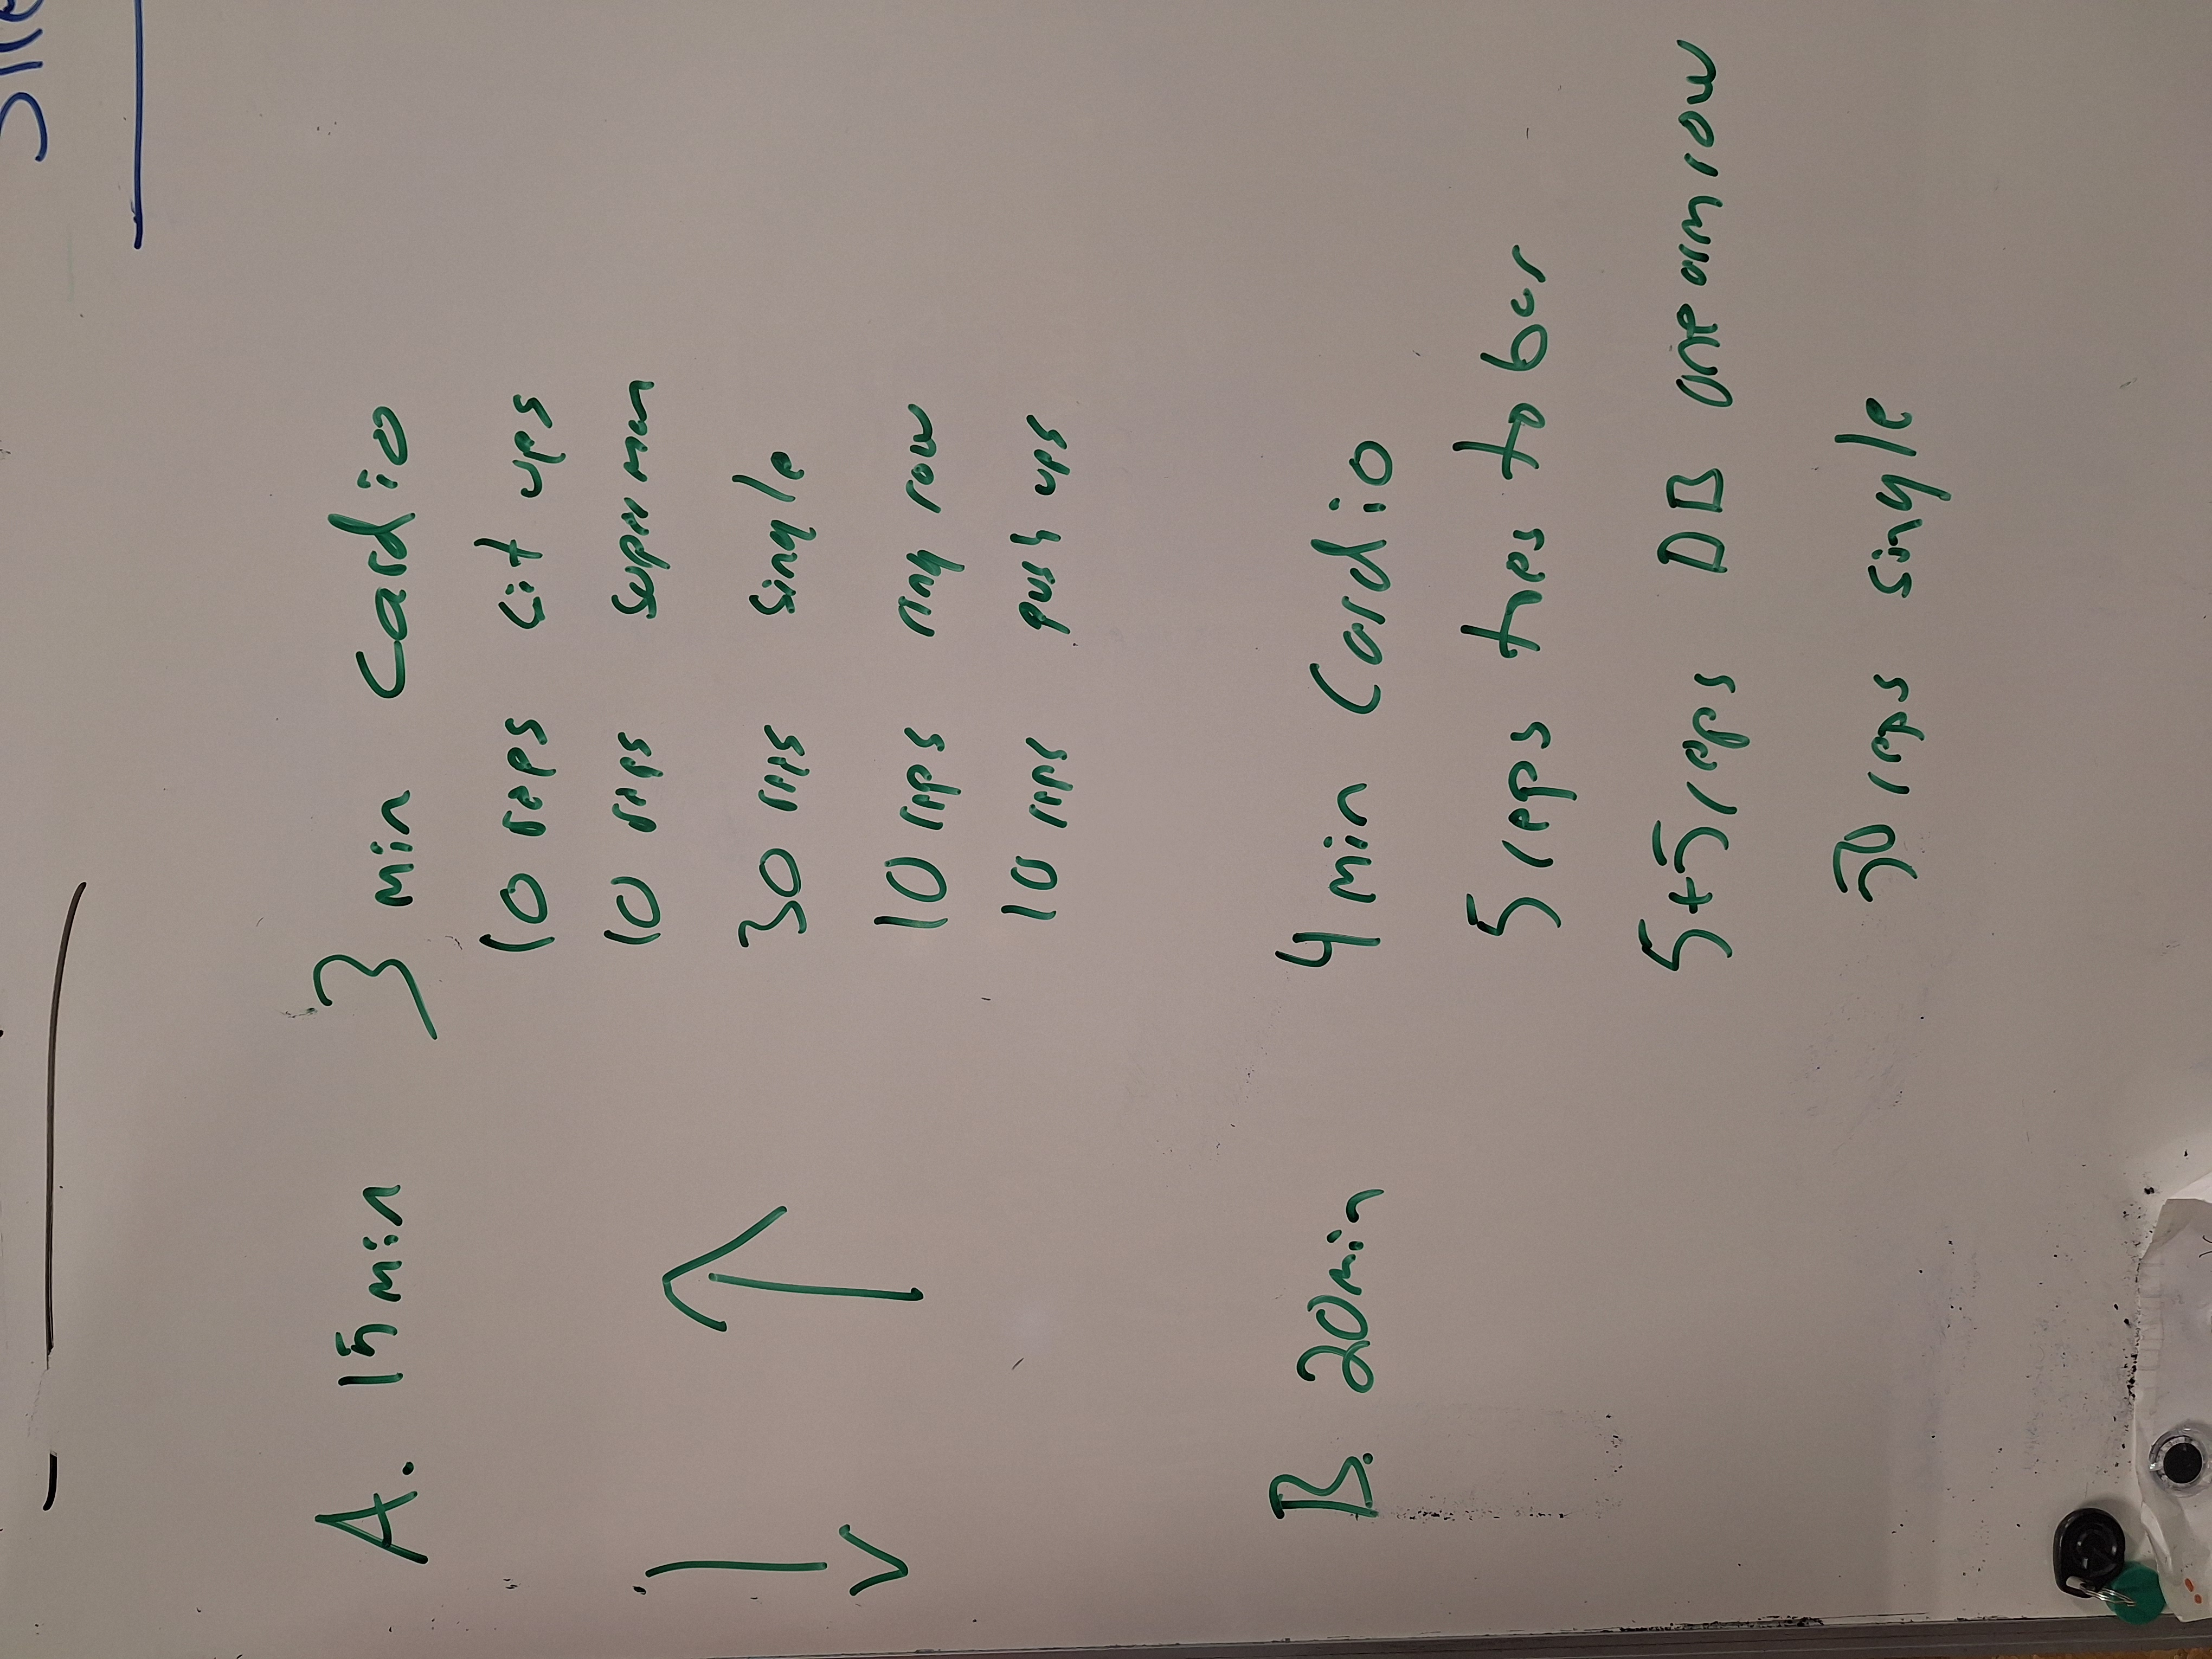 A. 15 min 3 min Cardio
10 reps sit ups
10 reps superman
30 reps single
10 reps ring row
10 reps push ups
B. 20min 4 min Cardio
5 reps toes to bar
5+5 reps DB one arm row
50 reps single